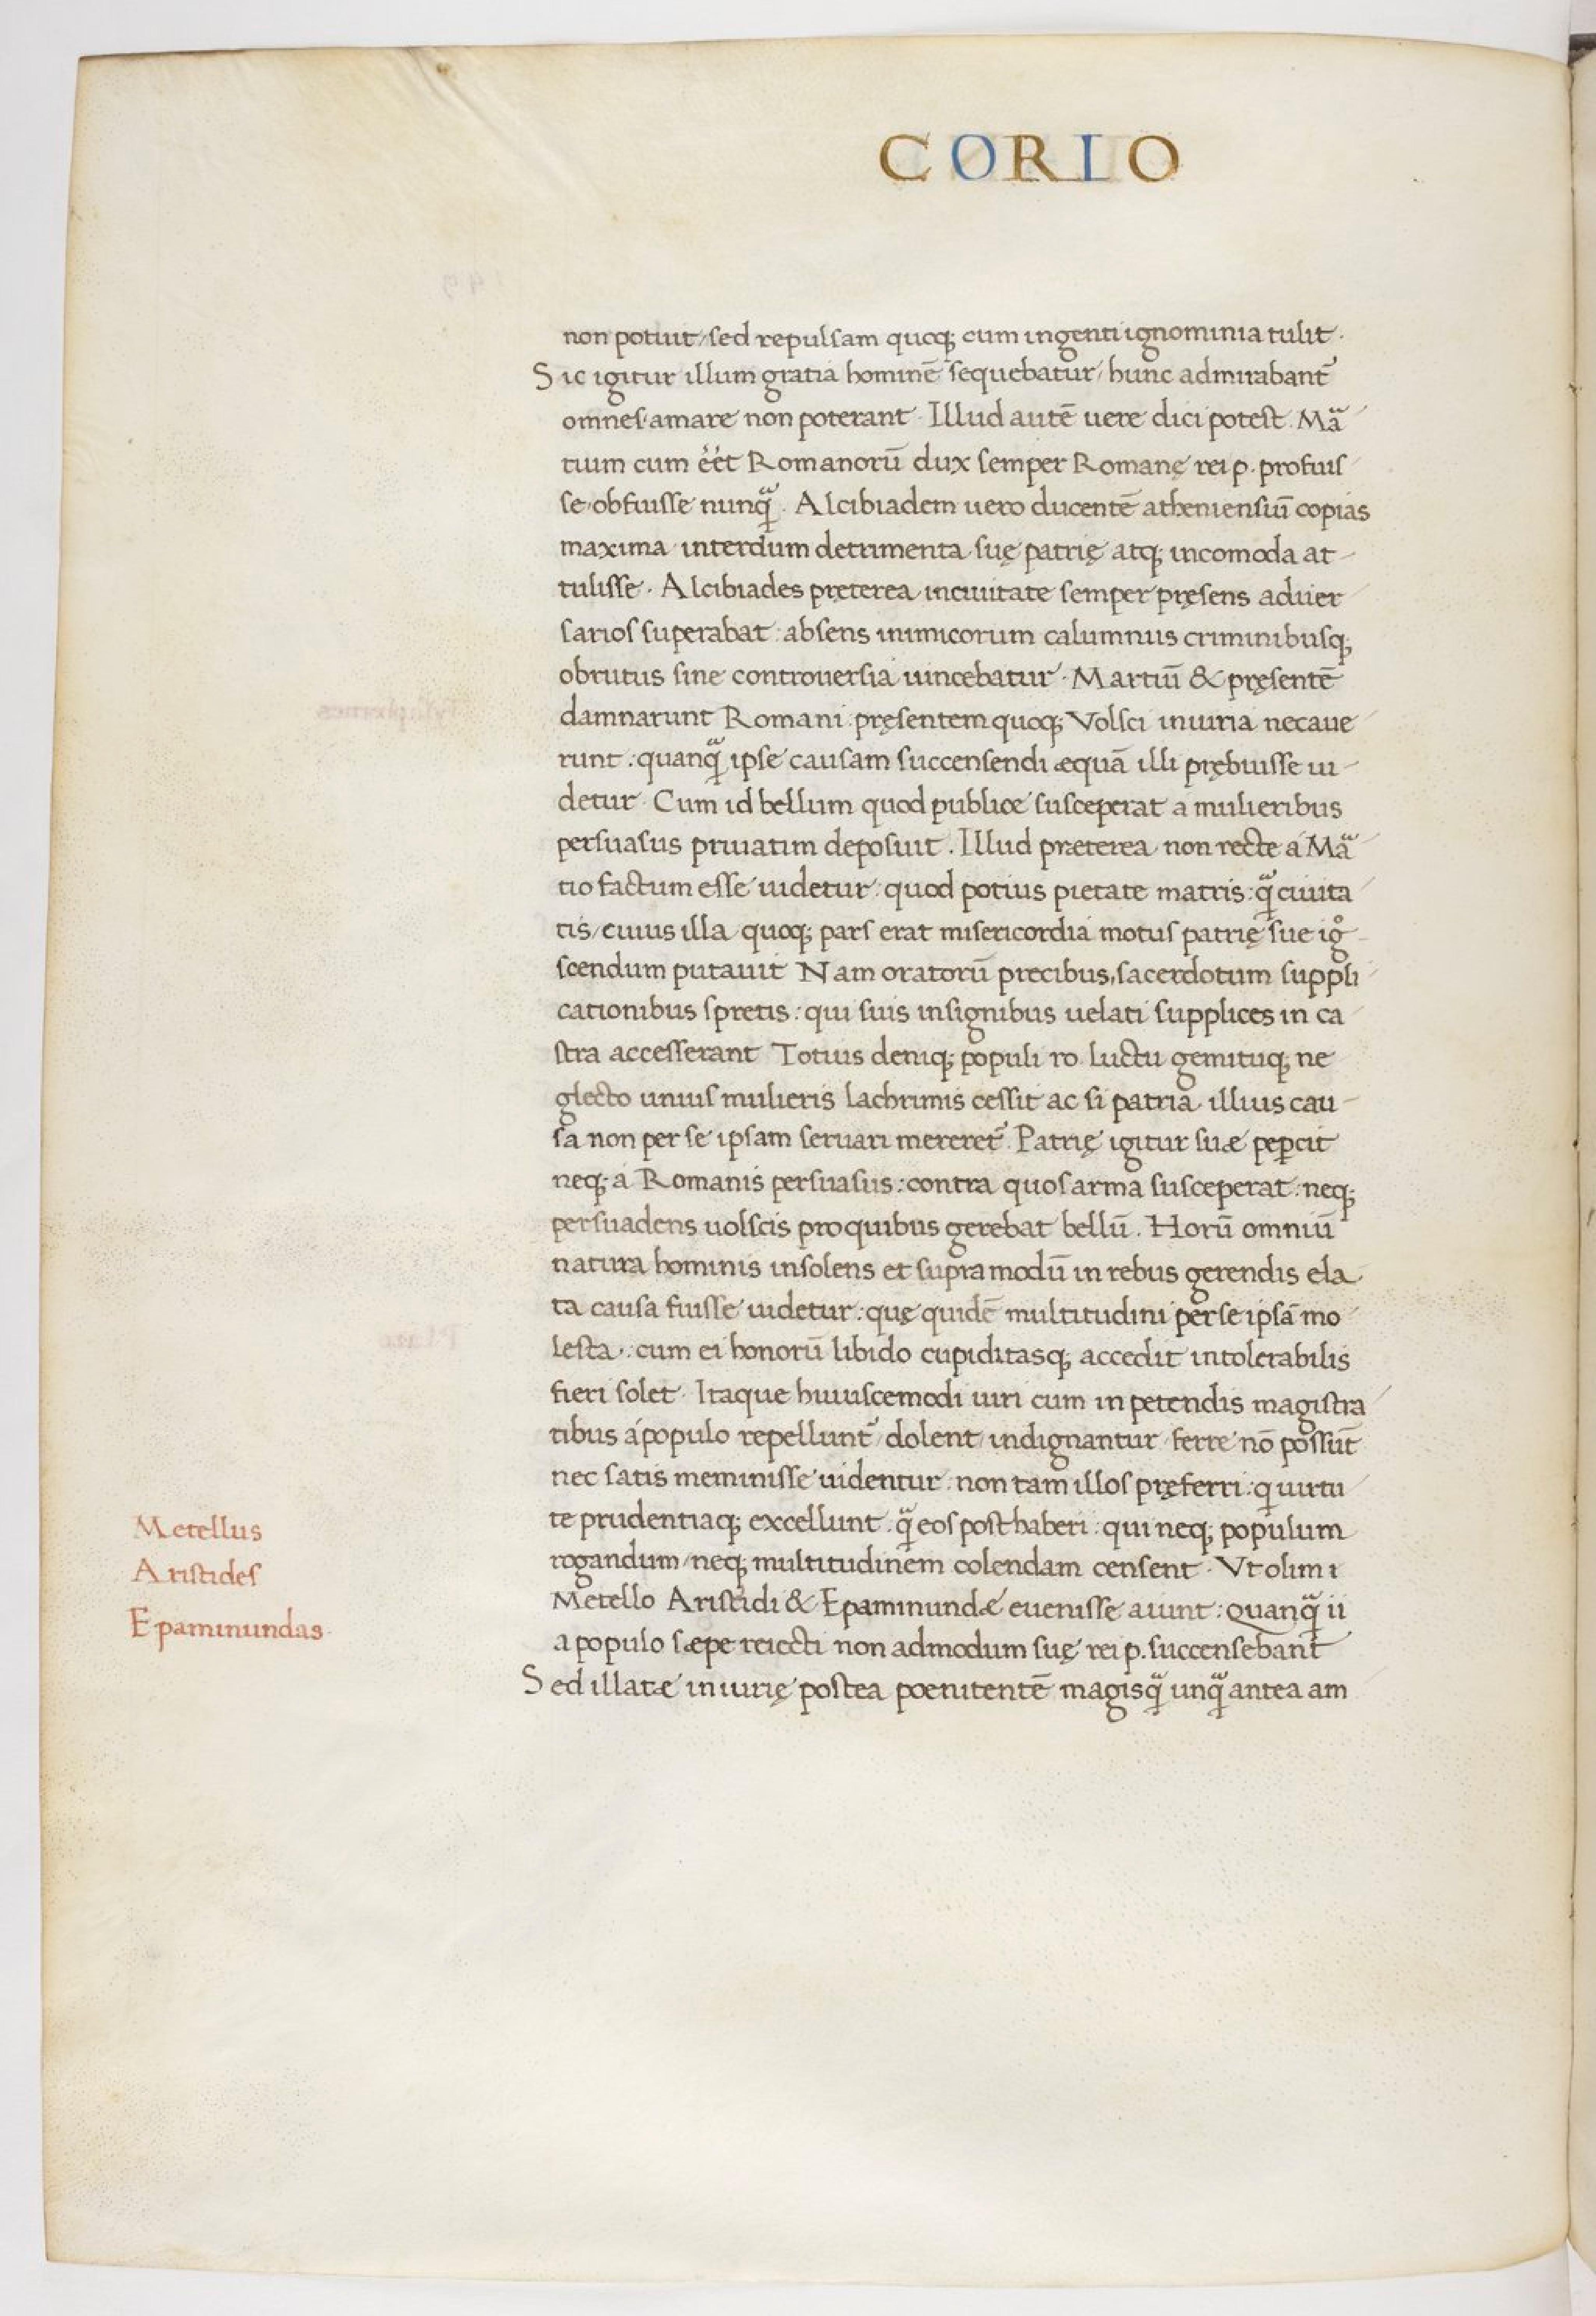 CORIO
non potuit / sed repulsam quoq; cum ingenti ignominia tulit .
Sic igitur illum gratia hominē sequebatur / hunc admirabant᷑
omnes / amare non poterant . Illud autē uere dici potest . Mᷓa
tium cum e᷑et Romanorū dux semper Romanę rei p . profuis
se / obfuisse nunqᷓ . Alcibiadem uero ducentē atheniensiū copias
maxima interdum detrimenta suę patrię atq; incomoda at -
tulisse . Alcibiades pręterea in ciuitate semper pręsens aduer
sarios superabat : absens inimicorum calumniis criminibusq;
obrutus sine controuersia uincebatur . Martiū & pręsentē
damnarunt Romani : pręsentem quoq; Volsci iniuria necaue
runt : quanqᷓ ipse causam succensendi æquā illi prębuisse ui -
detur . Cum id bellum quod publice susceperat a mulieribus
persuasus priuatim deposuit . Illud præterea non recte á Mᷓa
tio factum esse uidetur : quod potius pietate matris : qᷓ ciuita
tis / cuius illa quoq; pars erat misericordia motus patrię sue igͦ
scendum putauit Nam oratorū precibus, sacerdotum suppli
cationibus spretis : qui suis insignibus uelati supplices in ca
stra accesserant Totius deniq; populi ro . luctu gemituq; ne
glecto unius mulieris lachrimis cessit ac si patria illius cau -
sa non per se ipsam seruari mereret᷑ . Patrię igitur suæ peꝑcit
neq; a Romanis persuasus : contra quos arma susceperat : neq;
persuadens uolscis pro quibus gerebat bellū . Horū omniū
natura hominis insolens et supra modū in rebus gerendis ela
ta causa fuisse uidetur : quę quidē multitudini per se ipsā mo
lesta . : cum ei honorū libido cupiditasq; accedit intolerabilis
fieri solet . Itaque huiuscemodi uiri cum in petendis magistra
tibus á populo repellunt᷑ / dolent / indignantur / ferre nō possūt
nec satis meminisse uidentur : non tam illos pręferri : q uirtu
te prudentiaq; excellunt . qᷓ eos posthaberi : qui neq; populum
rogandum / neq; multitudinem colendam censent . Vt olim i
Metello Aristidi & Epaminundæ euenisse aiunt : Quanqᷓ ii
a populo sæpe reiecti non admodum suę rei p . succensebant
Sed illatæ iniurię postea poenitentē magisqᷓ unqᷓ antea am
Metellus
Aristides
Epaminundas